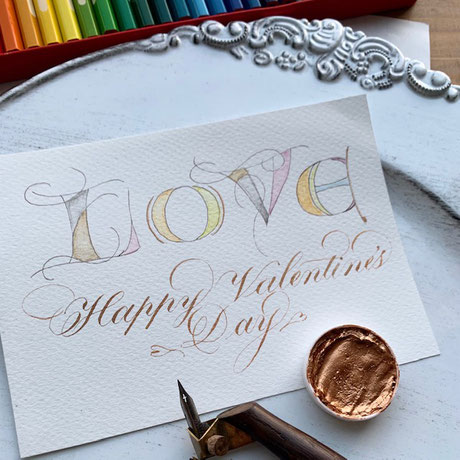 LOVE
Happy Valentine's
Day